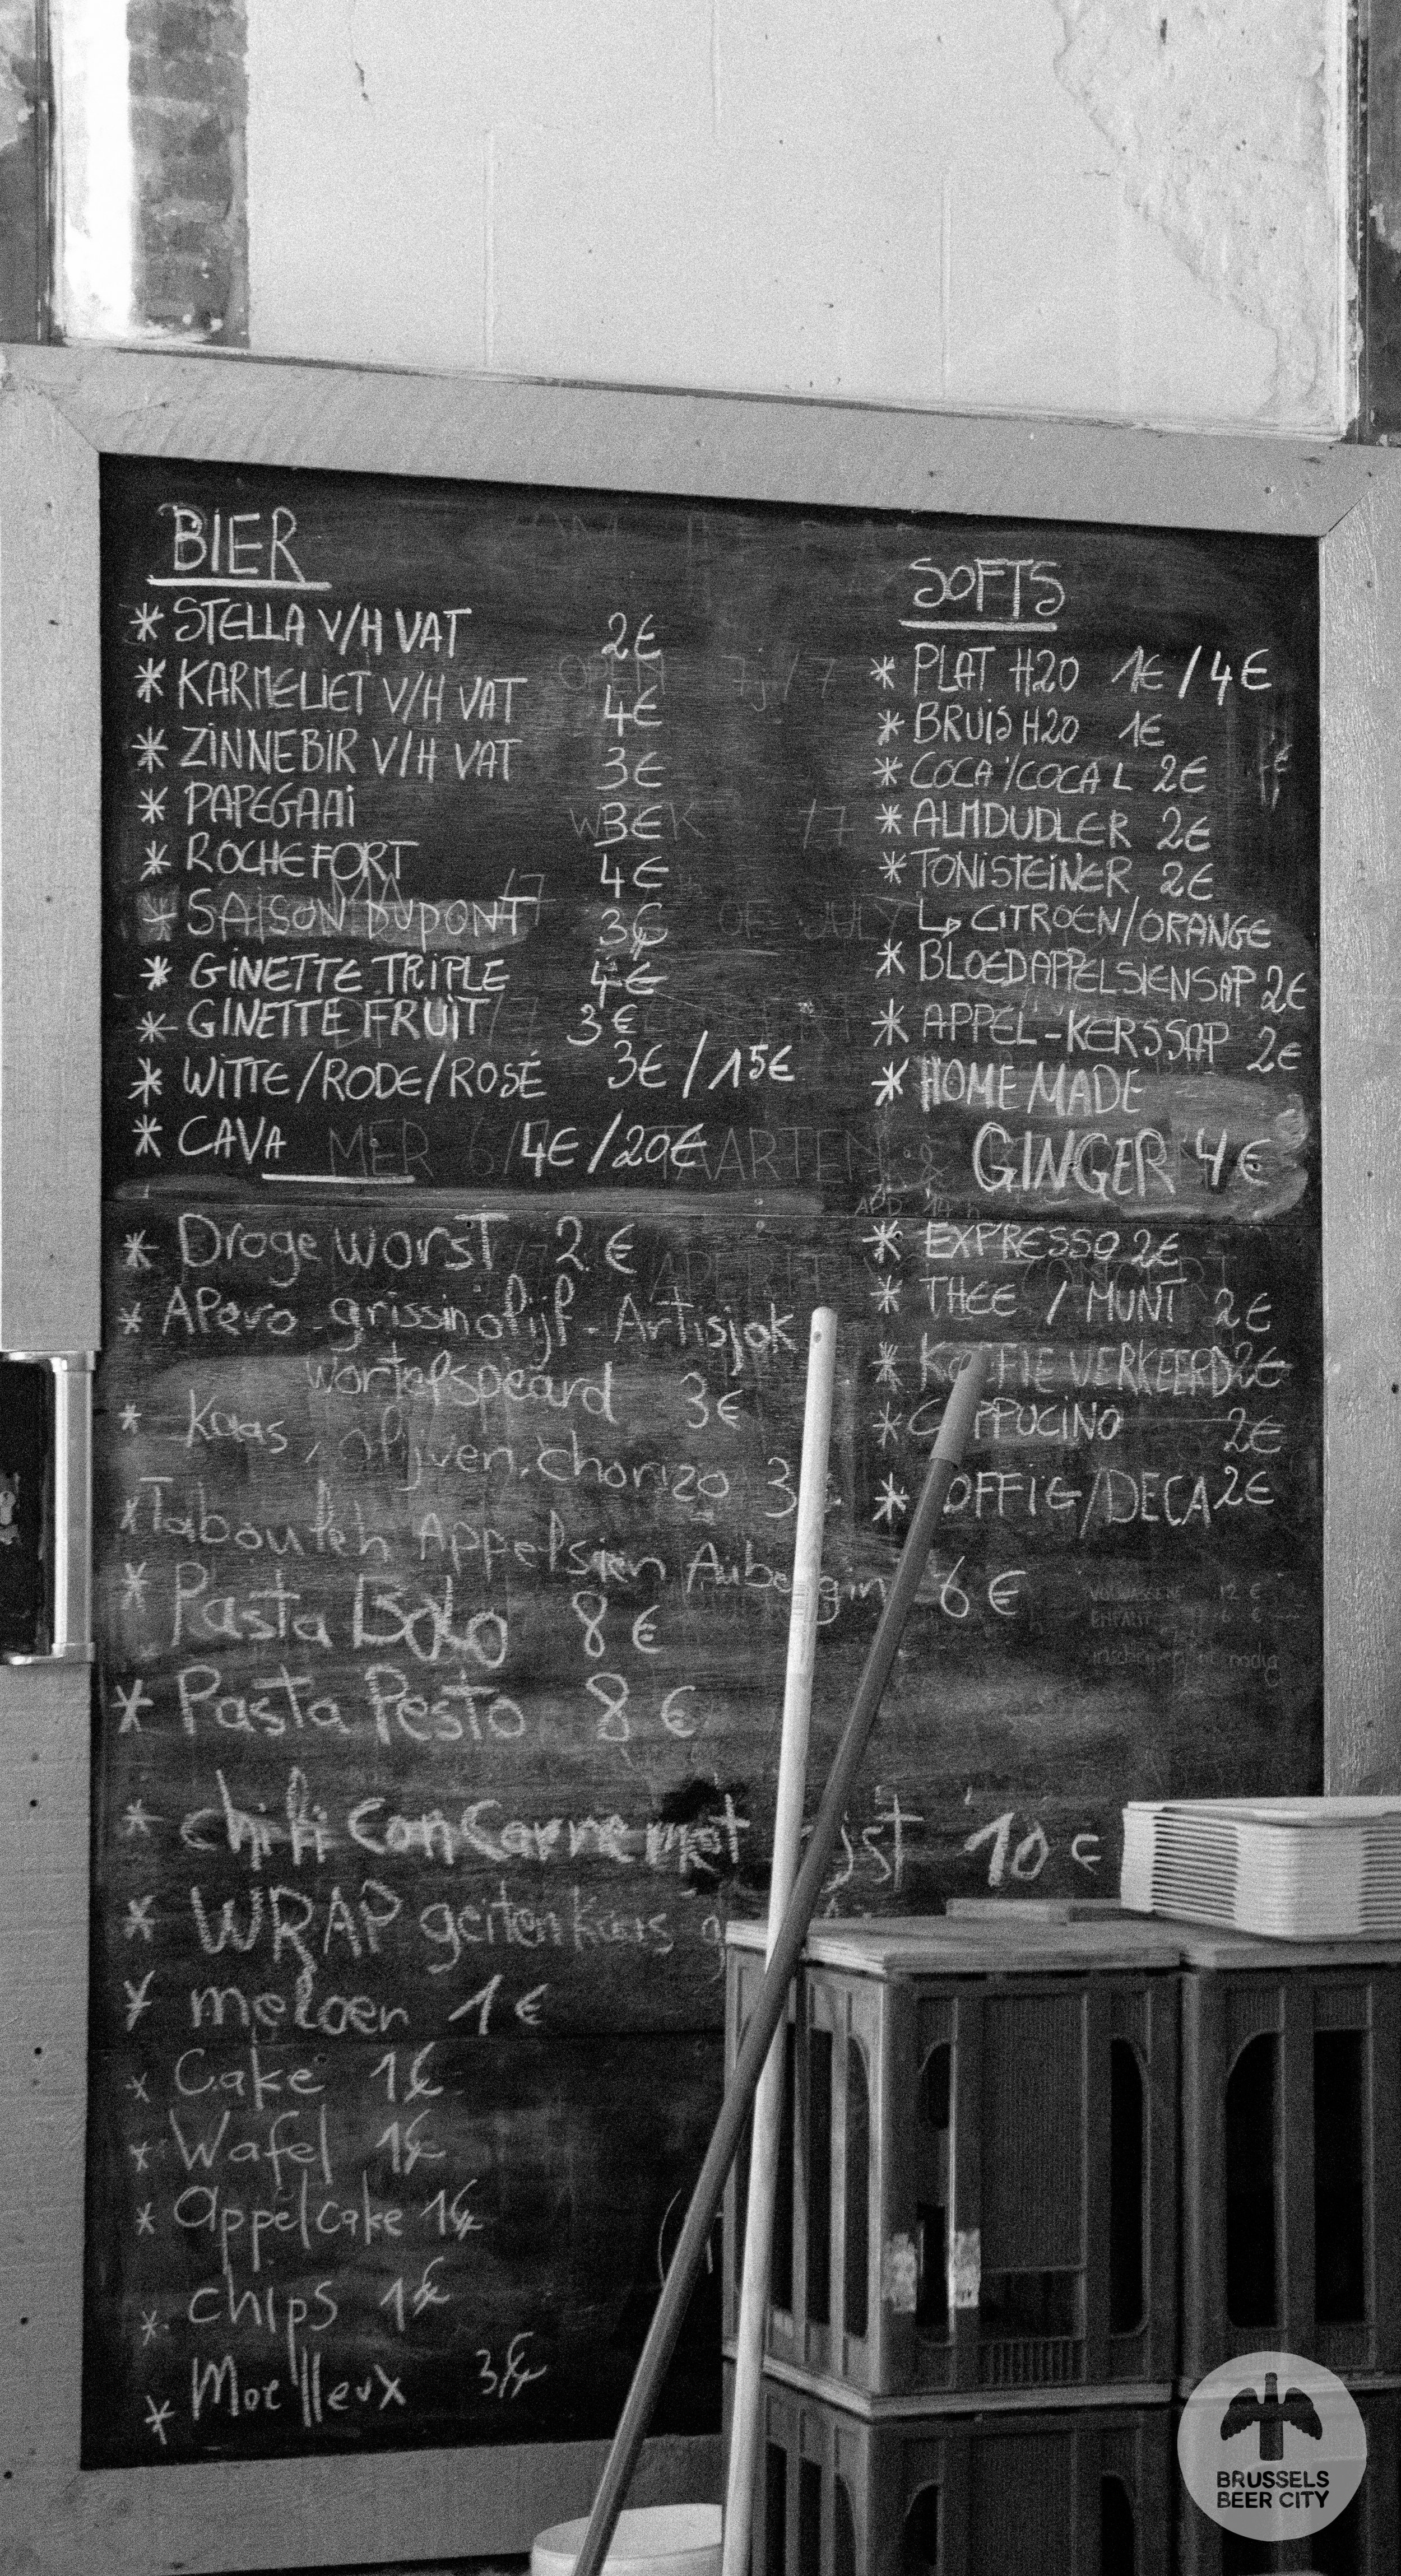 BIER
* STELLA V/H VAT 2€
* KARMELIET V/H VAT 4€
* ZINNEBIR V/H VAT 3€
* PAPEGAAI 3€
* ROCHEFORT 4€
* SAISON DUPONT 3€
* GINETTE TRIPLE 4€
* GINETTE FRUIT 3€
* WITTE/RODE/ROSÉ 3€/15€
* CAVA 4€/20€
* Droge worst 2€
* APero - grissin olijf - Artisjok
wortelspeard 3€
* Kaas, olijven, chorizo 3
* Tabouleh Appelsien Aubergin 6€
* Pasta Bolo 8€
* Pasta Pesto 8€
* chili con Carne met 10€
* WRAP geitenkaas
* meloen 1€
* Cake 1€
* Wafel 1€
* appelcake 1€
* chips 1€
* Moelleux 3€
SOFTS
* PLAT H20 1€/4€
* BRUIS H20 1€
* COCA/COCA L 2€
* ALMDUDLER 2€
* TONISTEINER 2€
↳ CITROEN/ORANGE
* BLOEDAPPELSIENSAP 2€
* APPEL-KERSSAP 2€
* HOME MADE
GINGER 4€
* EXPRESSO 2€
* THEE / MUNT 2€
* KOFFIE VERKEERD 2€
* CAPPUCINO 2€
* OFFIE/DECA 2€
BRUSSELS
BEER CITY